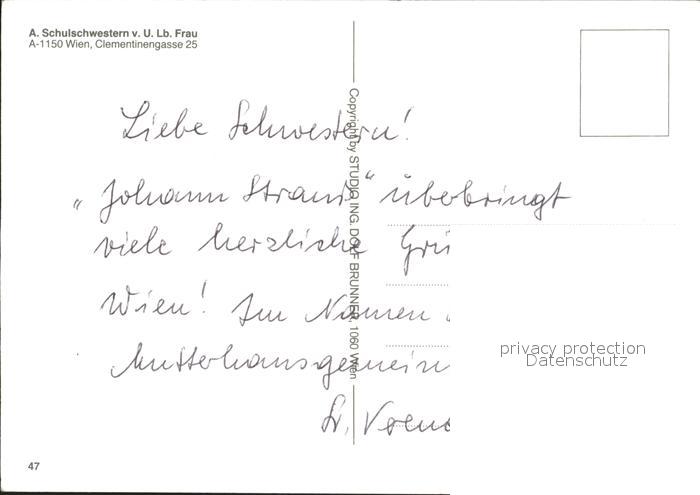 A. Schulschwestern v. U. Lb. Frau
A-1150 Wien, Clementinengasse 25
Copyright by STUDIO ING. DOLF BRUNNER, 1060 Wien
Liebe Schwestern!
„Johann Strauß“ überbringt
viele herzliche Grü
Wien! Im Namen
Mutterhausgemein
Sr. Veren
privacy protection
Datenschutz
47